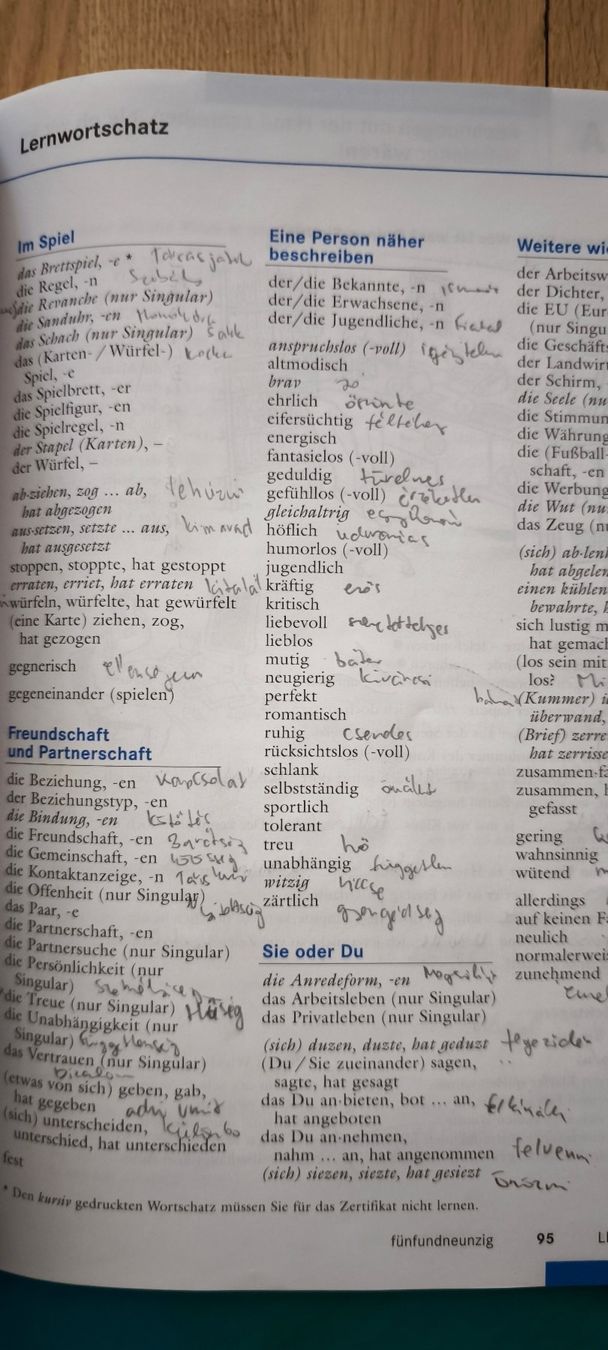 Lernwortschatz
Im Spiel
das Brettspiel, -e *
die Regel, -n
die Revanche (nur Singular)
die Sanduhr, -en
das Schach (nur Singular) Sakk
das (Karten-/Würfel-)
Spiel, -e
das Spielbrett, -er
die Spielfigur, -en
die Spielregel, -n
der Stapel (Karten), –
der Würfel, –
ab·ziehen, zog ... ab,
hat abgezogen
aus·setzen, setzte ... aus, kimarad
hat ausgesetzt
stoppen, stoppte, hat gestoppt
erraten, erriet, hat erraten kitalál
würfeln, würfelte, hat gewürfelt
(eine Karte) ziehen, zog,
hat gezogen
gegnerisch
gegeneinander (spielen)
Freundschaft
und Partnerschaft
die Beziehung, -en kapcsolat
der Beziehungstyp, -en
die Bindung, -en
die Freundschaft, -en
die Gemeinschaft, -en
die Kontaktanzeige, -n
die Offenheit (nur Singular)
das Paar, -e
die Partnerschaft, -en
die Partnersuche (nur Singular)
die Persönlichkeit (nur
Singular)
die Treue (nur Singular) Hűség
die Unabhängigkeit (nur
Singular)
das Vertrauen (nur Singular)
(etwas von sich) geben, gab,
hat gegeben
(sich) unterscheiden,
unterschied, hat unterschieden
fest
Eine Person näher
beschreiben
der/die Bekannte, -n
der/die Erwachsene, -n
der/die Jugendliche, -n
anspruchslos (-voll)
altmodisch
brav jó
ehrlich őszinte
eifersüchtig
energisch
fantasielos (-voll)
geduldig türelmes
gefühllos (-voll)
gleichaltrig
höflich udvarias
humorlos (-voll)
jugendlich
kräftig erős
kritisch
liebevoll
lieblos
mutig bátor
neugierig kíváncsi
perfekt
romantisch
ruhig csendes
rücksichtslos (-voll)
schlank
selbstständig önálló
sportlich
tolerant
treu hű
unabhängig független
witzig vicces
zärtlich
Sie oder Du
die Anredeform, -en
das Arbeitsleben (nur Singular)
das Privatleben (nur Singular)
(sich) duzen, duzte, hat geduzt tegeződni
(Du / Sie zueinander) sagen,
sagte, hat gesagt
das Du an·bieten, bot ... an,
hat angeboten
das Du an·nehmen,
nahm ... an, hat angenommen
(sich) siezen, siezte, hat gesiezt
Weitere wi
der Arbeitsw
der Dichter,
die EU (Eur
(nur Singu
die Geschäft
der Landwir
der Schirm,
die Seele (nu
die Stimmun
die Währung
die (Fußball-
schaft, -en
die Werbung
die Wut (nu
das Zeug (nu
(sich) ab·lenk
hat abgelen
einen kühlen
bewahrte, h
sich lustig m
hat gemach
(los sein mit
los?
(Kummer) ü
überwand,
(Brief) zerre
hat zerrisse
zusammen·fa
zusammen, h
gefasst
gering
wahnsinnig
wütend
allerdings
auf keinen Fa
neulich
normalerweis
zunehmend
* Den kursiv gedruckten Wortschatz müssen Sie für das Zertifikat nicht lernen.
fünfundneunzig 95